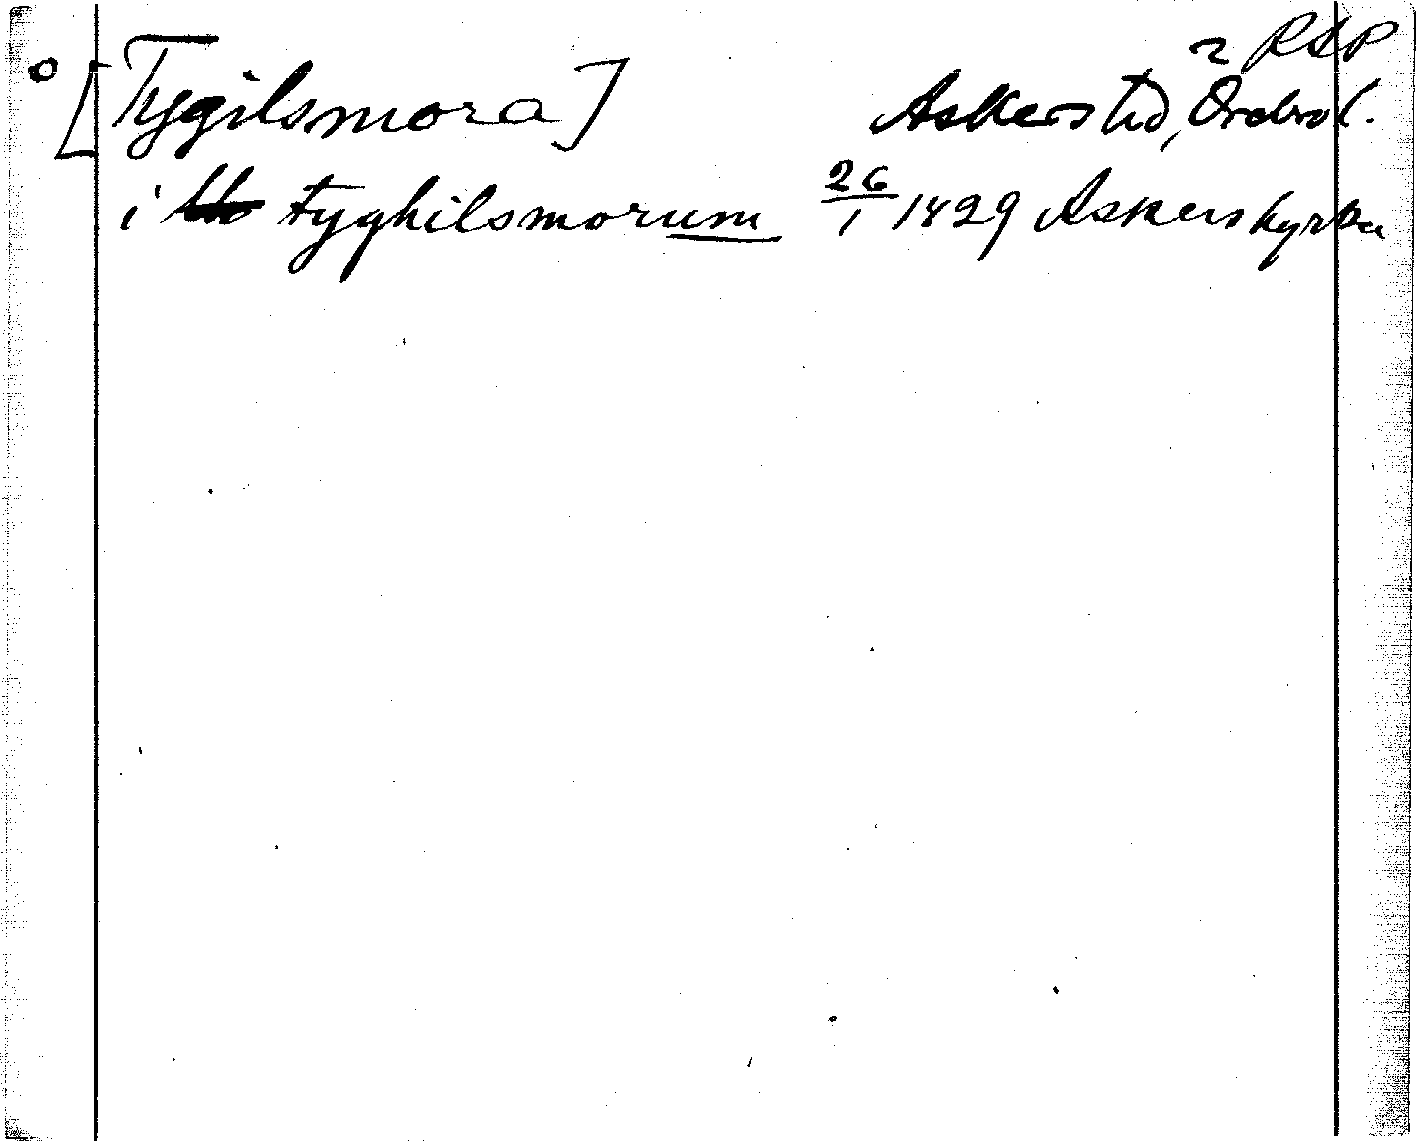 ~ RAP
° [Tygilsmora] Askers hd, Örebro l.
i tyghilsmorum 26/1 1829 Askers kyrka